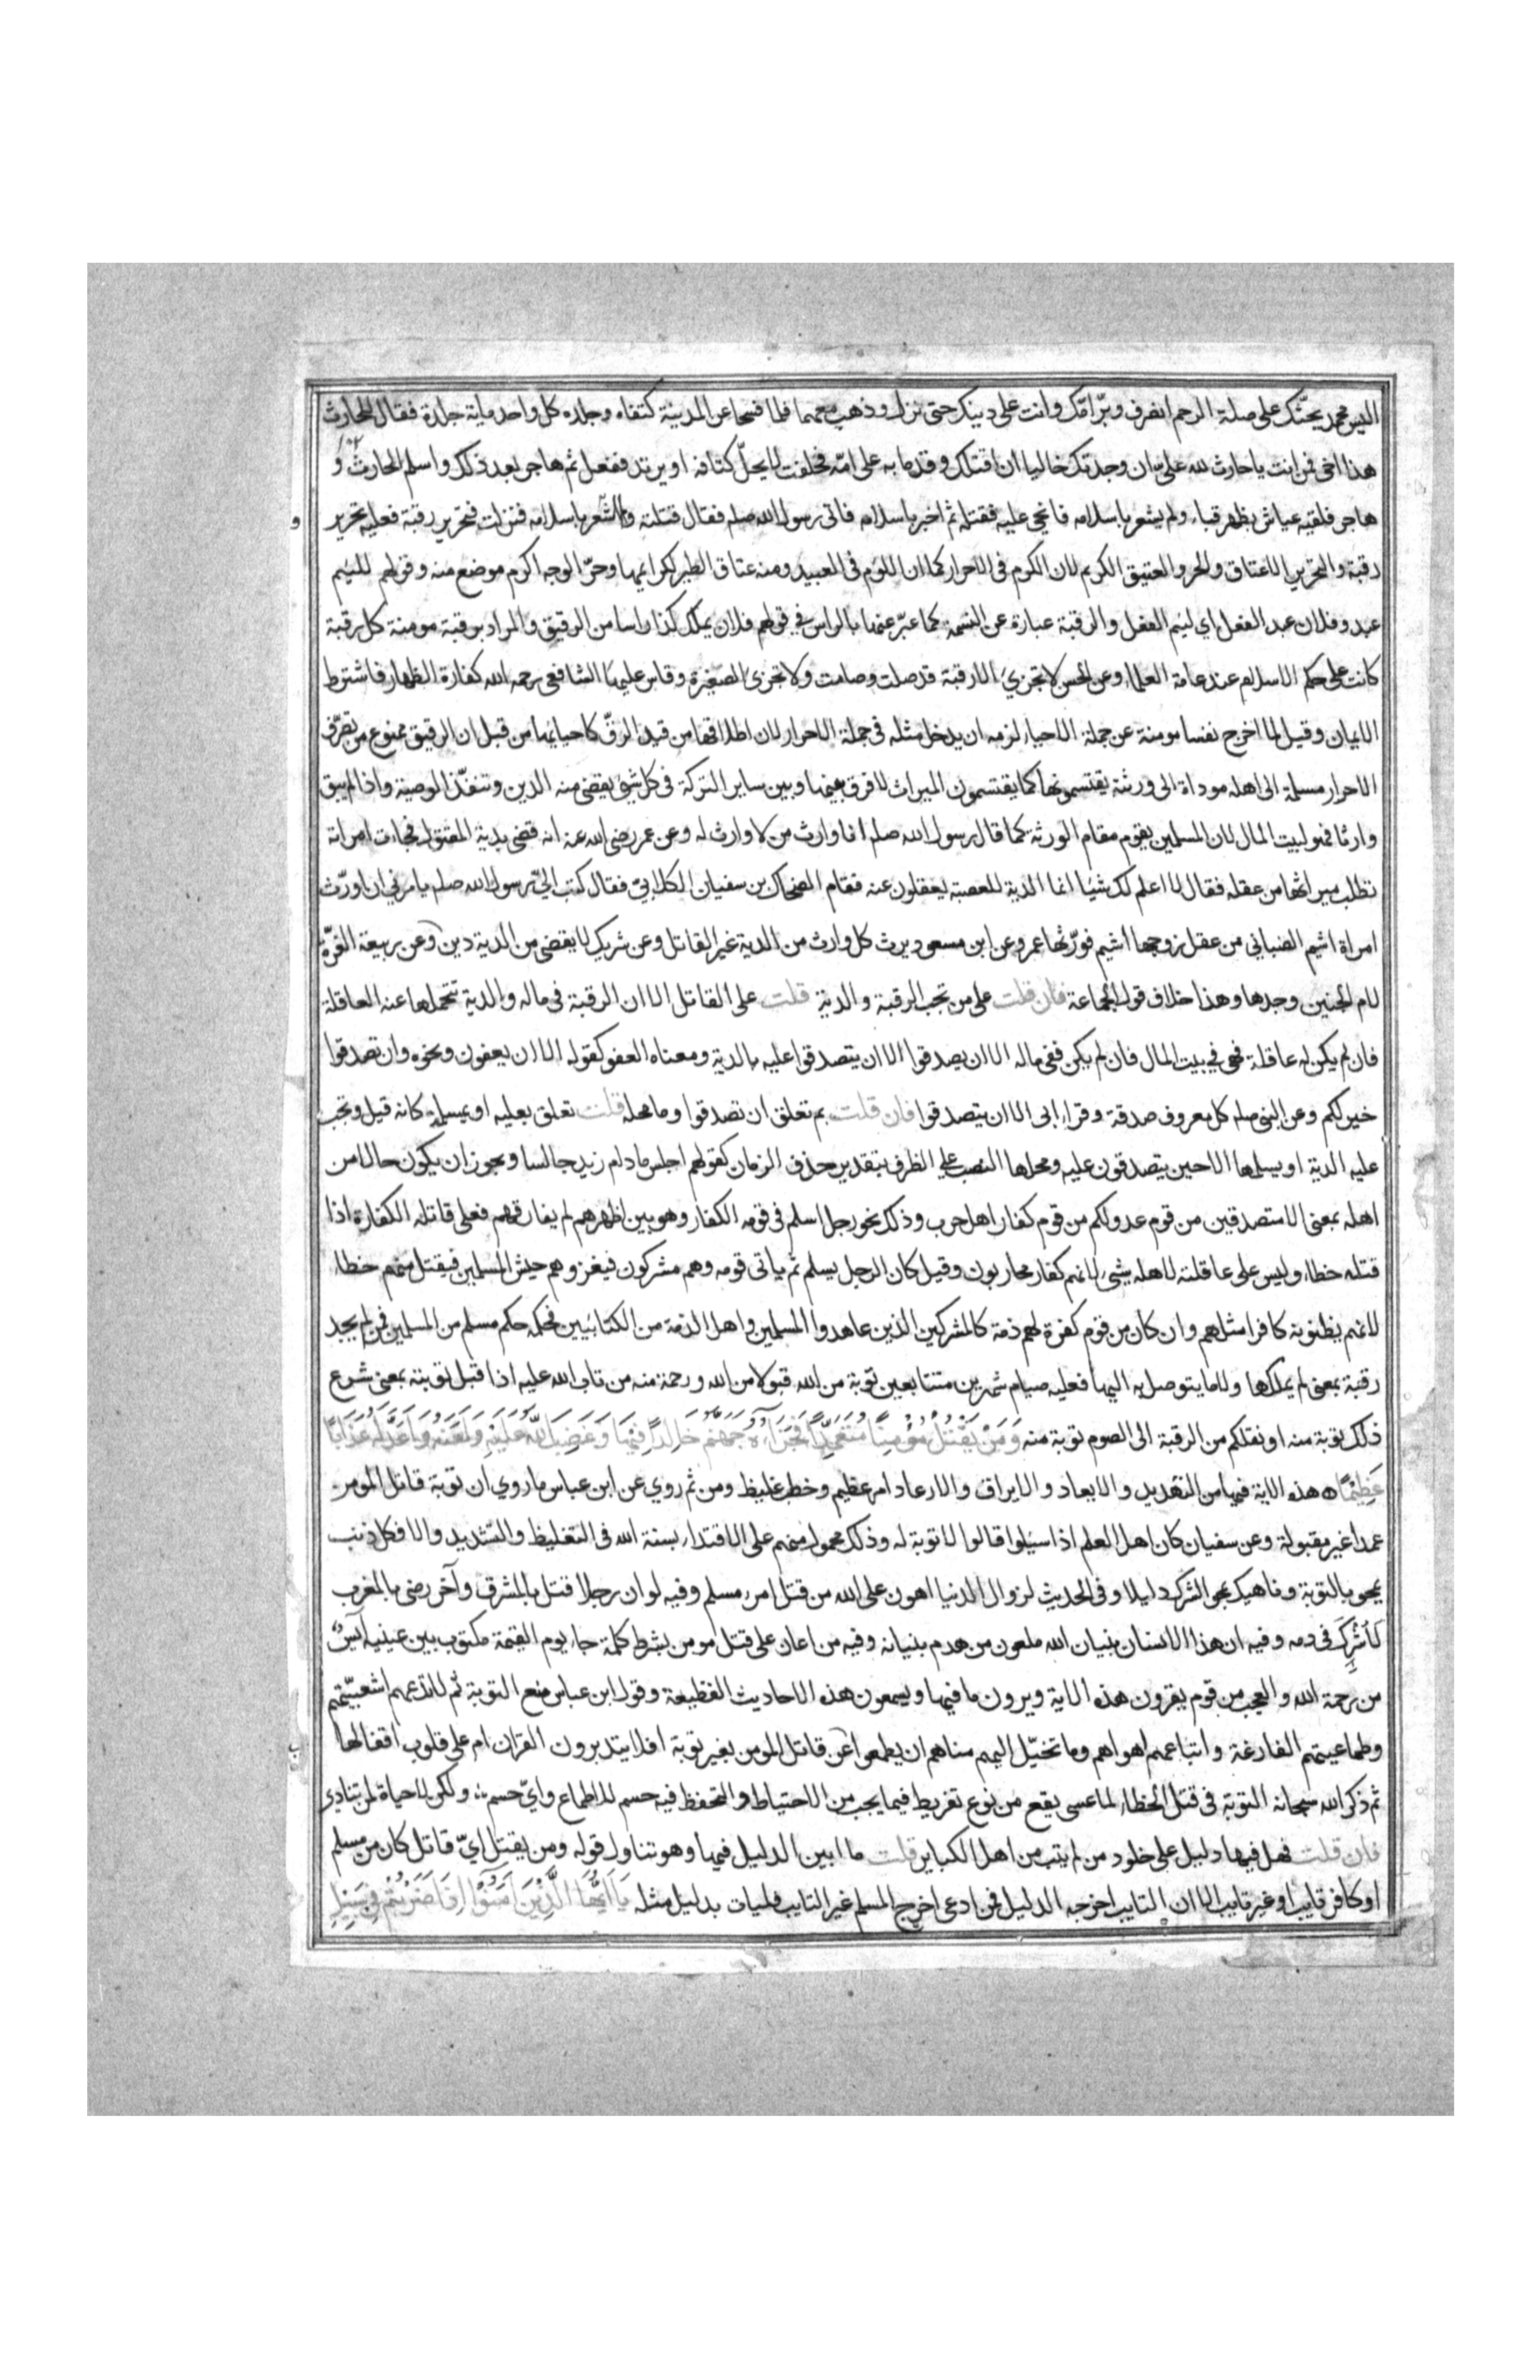 اليس محمد يحثّك على صلة الرحم انصرف وبرّ امّك وانت على دينك حتى نزل وذهب معهما فلما فسحا عن المدينة كتفاه وجلده كل واحد ماية جلدة فقال للحارث
هذا اخى فمن انت يا حارث لله علىّ ان وجدتك خاليا ان اقتلك وقدما به على امّه فحلفت لا يحلّ كتافه او يرتد ففعل ثم هاجر بعد ذلك واسلم الحارث و
هاجر فلقيه عياش بظهر قباء ولم يشعر باسلامه فانحى عليه فقتله ثم اخبر باسلامه فاتى رسول الله صلعم فقال قتلته ولم اشعر باسلامه فنزلت فتحرير رقبة فعليه تحرير
رقبة والتحرير الاعتاق والحر والعتيق الكريم لان الكرم فى الاحرار كما ان اللؤم فى العبيد ومنه عتاق الطير لكرايمها وحرّ الوجه اكرم موضع منه وقولهم للئيم
عبد وفلان عبد الفعل اي لئيم الفعل والرقبة عبارة عن النسمة كما عبّر عنها بالراس في قولهم فلان يملك كذا راسا من الرقيق والمراد برقبة مومنة كل رقبة
كانت على حكم الاسلام عند عامة العلماء وعن الحسن لا تجزي الا رقبة قد صلت وصامت ولا تجزئ الصغيرة وقاس عليها الشافعى رحمه الله كفارة الظهار فاشترط
الايمان وقيل لما اخرج نفسا مومنة عن جملة الاحياء لزمه ان يدخل مثله فى جملة الاحرار لان اطلاقها من قيد الرقّ كاحيايها من قبل ان الرقيق ممنوع من تصرّف
الاحرار مسلمة الى اهله موداة الى ورثة يقتسمونها كما يقتسمون الميراث لا فرق بينها وبين ساير التركة فى كل شئ يقضى منه الدين وتنفّذ الوصية واذا لم يبق
وارثا فهو لبيت المال لان المسلمين يقوم مقام الورثة كما قال رسول الله صلعم انا وارث من لا وارث له وعن عمر رضى الله عنه انه قضى بدية المقتول فجاءت امراته
تطلب ميراثها من عقله فقال لا اعلم لك شيئا انما الدية للعصبة يعقلون عنه فقام الضحاك بن سفيان الكلابيّ فقال كتب اليّ رسول الله صلعم يامرني ان اورّث
امراة اشيم الضبابي من عقل زوجها اشيم فورّثها عمر وعن ابن مسعود يرث كل وارث من الدية غير القاتل وعن شريك لا يقضى من الدية دين وعن ربيعة الغرّة
لام الجنين وحدها وهذا خلاف قول الجماعة فان قلت على من تجب الرقبة والدية قلت على القاتل الا ان الرقبة فى ماله والدية تتحملها عنه العاقلة
فان لم يكن له عاقلة فهى في بيت المال فان لم يكن ففى ماله الا ان يصدقوا الا ان يتصدقوا عليه بالدية ومعناه العفو كقوله الا ان يعفون ونحوه وان تصدقوا
خير لكم وعن النبى صلعم كل معروف صدقة وقرا ابى الا ان يتصدقوا فان قلت بم تعلق ان تصدقوا وما محله قلت تعلق بعليه او بمسلمة كانه قيل وتجب
عليه الدية او يسلمها الا حين يتصدقون عليه ومحلها النصب على الظرف بتقدير حذف الزمان كقولهم اجلس ما دام زيد جالسا ويجوز ان يكون حالا من
اهله بمعنى الا متصدقين من قوم عدو لكم من قوم كفار اهل حرب وذلك نحو رجل اسلم فى قومه الكفار وهو بين اظهرهم لم يفارقهم فعلى قاتله الكفارة اذا
قتله خطاء وليس على عاقلته لاهله شئ لانهم كفار محاربون وقيل كان الرجل يسلم ثم ياتى قومه وهم مشركون فيغزوهم جيش المسلمين فيقتل منهم خطاء
لانهم يظنونه كافرا مثلهم وان كان من قوم كفرة لهم ذمة كالمشركين الذين عاهدوا المسلمين واهل الذمة من الكتابيين فحكمه حكم مسلم من المسلمين فمن لم يجد
رقبة بمعنى لم يملكها ولا ما يتوصل به اليها فعليه صيام شهرين متتابعين توبة من الله قبولا من الله ورحمة منه من تاب الله عليه اذا قبل توبته بمعنى شرع
ذلك توبة منه او نقلكم من الرقبة الى الصوم توبة منه وَمَنْ يَقْتُلْ مُؤْمِنًا مُتَعَمِّدًا فَجَزَاؤُهُ جَهَنَّمُ خَالِدًا فِيْهَا وَغَضِبَ اللّٰهُ عَلَيْهِ وَلَعَنَهُ وَاَعَدَّ لَهُ عَذَابًا
عَظِيْمًا ه هذه الاية فيها من التهديد والايعاد والابراق والارعاد امر عظيم وخطب غليظ ومن ثم روي عن ابن عباس ما روي ان توبة قاتل المومن
عمدا غير مقبولة وعن سفيان كان اهل العلم اذا سئلوا قالوا لا توبة له وذلك محمول منهم على الاقتداء بسنة الله فى التغليظ والتشديد والا فكل ذنب
يمحو بالتوبة وناهيك بمحو الشرك دليلا وفى الحديث لزوال الدنيا اهون على الله من قتل امرء مسلم وفيه لو ان رجلا قتل بالمشرق وآخر رضى بالمغرب
لَاُشْرِكَ فى دمه وفيه ان هذا الانسان بنيان الله ملعون من هدم بنيانه وفيه من اعان على قتل مومن بشطر كلمة جاء يوم القيمة مكتوب بين عينيه آيسٌ
من رحمة الله والعجب من قوم يقرون هذه الاية ويرون ما فيها ويسمعون هذه الاحاديث العظيمة وقول ابن عباس بمنع التوبة ثم لا تدعهم اشعبيّتهم
وطماعيتهم الفارغة واتباعهم اهواهم وما تخيّل اليهم مناهم ان يطمعوا عن قاتل المومن بغير توبة افلا يتدبرون القران ام على قلوب اقفالها
ثم ذكر الله سبحانه التوبة فى قتل الخطاء لما عسى يقع من نوع تفريط فيما يجب من الاحتياط والتحفظ فيه حسم للاطماع وايّ حسم ولكن لا حياة لمن تنادى
فان قلت فهل فيها دليل على خلود من لم يتب من اهل الكباير قلت ما ابين الدليل فيها وهو تناول قوله ومن يقتل ايّ قاتل كان من مسلم
او كافر تايب او غير تايب الا ان التايب اخرجه الدليل فمن ادعى اخرج المسلم غير التايب فليات بدليل مثله يَا اَيُّهَا الَّذِيْنَ آمَنُوْا اِذَا ضَرَبْتُمْ فِيْ سَبِيْلِ